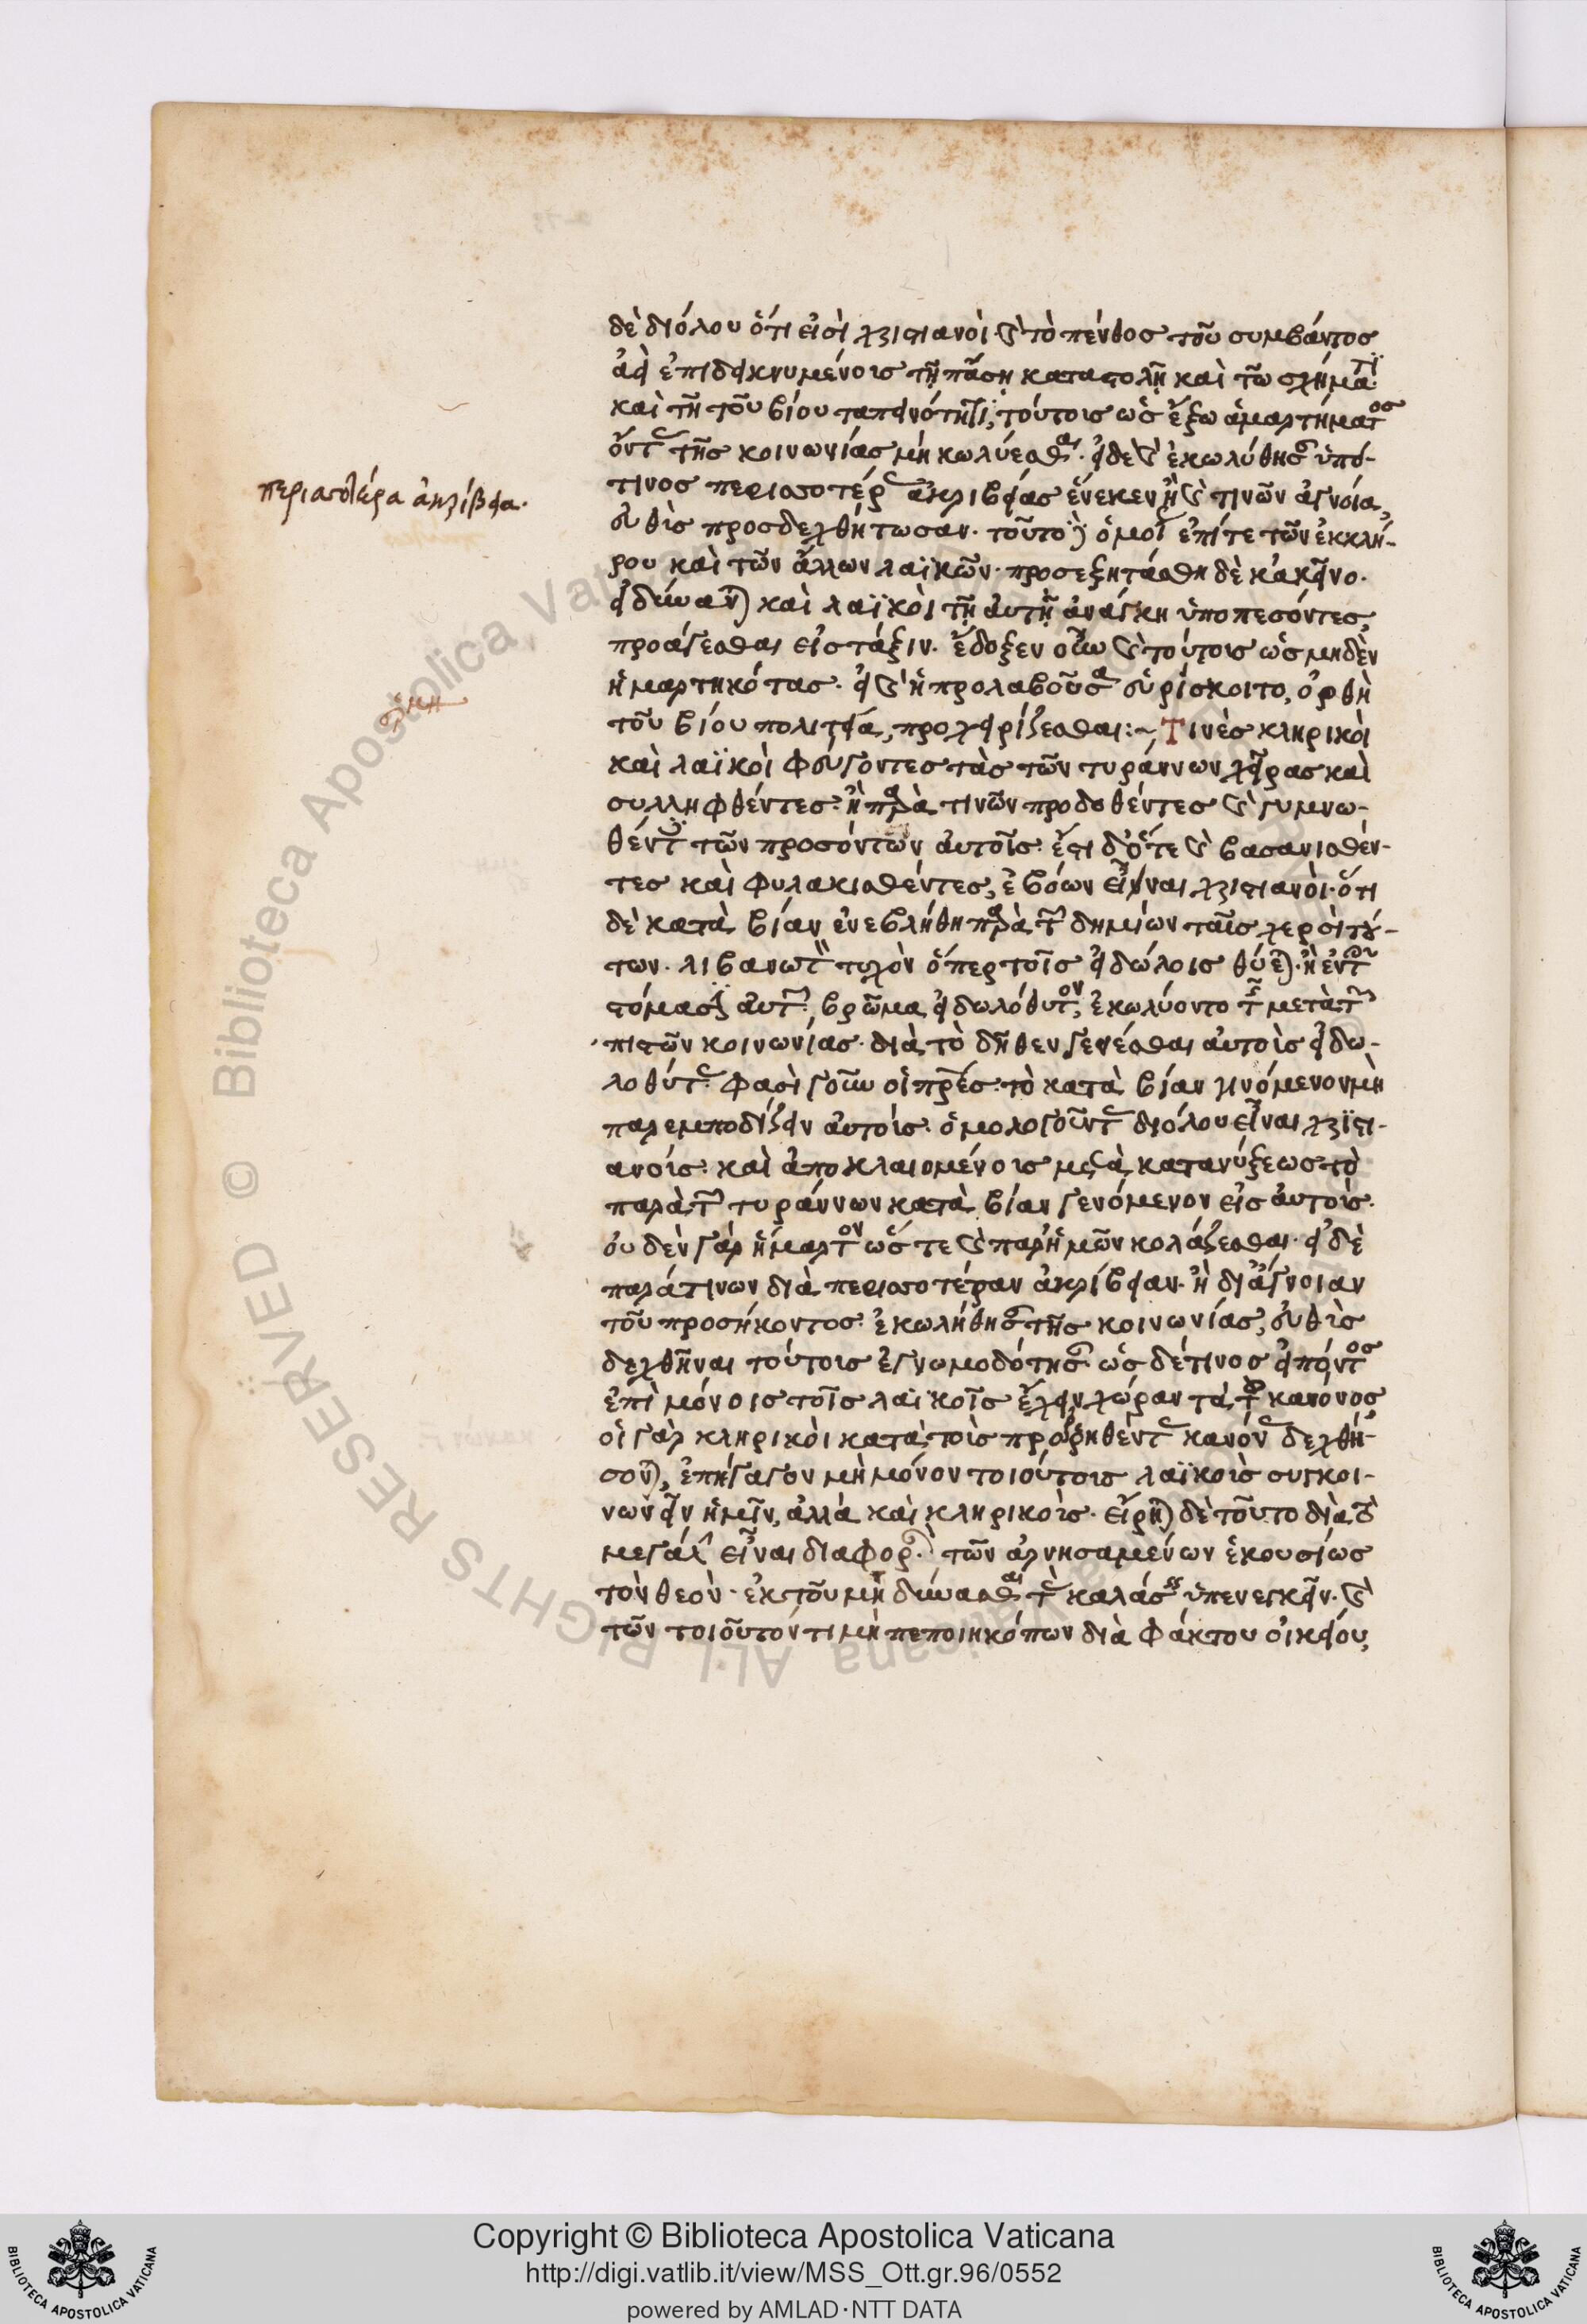 δὲ διόλου ὅτι εἰσὶ χριστιανοὶ καὶ τὸ πένθος τοῦ συμβάντος
ἀεὶ ἐπιδεικνυμένοις τῇ πάσῃ καταστολῇ καὶ τῶ σχήματι
καὶ τῇ τοῦ βίου ταπεινότητι, τούτοις ὡς ἔξω ἁμαρτήματος
ὄντας τῆς κοινωνίας μὴ κωλύεσθαι. εἰ δὲ καὶ ἐκωλύθησαν ὑπό-
τινος περισσοτέρας ἀκριβείας ἕνεκεν ἢ καὶ τινῶν ἀγνοία,
περισσοτέρα ἀκρίβεια.
εὐθὺς προσδεχθήτωσαν. τοῦτο δὲ ὁμοίως ἐπί τε τῶν ἐκ κλή-
ρου καὶ τῶν ἄλλων λαϊκῶν. προσεξητάσθη δὲ κἀκεῖνο.
εἰ δύνανται καὶ λαϊκοὶ τῇ αὐτῇ ἀνάγκη ὑποπεσόντες,
προάγεσθαι εἰς τάξιν. ἔδοξεν οὖν καὶ τούτοις ὡς μηδὲν
ἡμαρτηκότας. εἰ καὶ ἡ προλαβοῦσα εὑρίσκοιτο, ὀρθὴ
τοῦ βίου πολιτεία, προχειρίζεσθαι:~ Τινὲς κληρικοὶ
καὶ λαϊκοὶ φεύγοντες τὰς τῶν τυράννων χεῖρας καὶ
συλληφθέντες. ἢ παρὰ τινῶν προδοθέντες καὶ γυμνω-
θέντες τῶν προσόντων αὐτοῖς. ἔστι δ' ὅτε καὶ βασανισθέν-
τες καὶ φυλακισθέντες, ἐβόων εἶναι χριστιανοὶ. ὅτι
δὲ κατὰ βίαν ἐνεβλήθη παρὰ τῶν δημίων ταῖς χερσὶ τού-
των. λιβανωτὸς τυχὸν ὅπερ τοῖς εἰδώλοις θύεται. ἢ ἐν τοῖς
στόμασιν αὐτῶν, βρῶμα εἰδωλόθυτον, ἐκωλύοντο τῆς μετὰ τῶν
πιστῶν κοινωνίας. διὰ τὸ δῆθεν γενέσθαι αὐτοὶς εἰδω-
λοθύτας. φασὶ γοῦν οἱ πρες. τὸ κατὰ βίαν γινόμενον μὴ
παρεμποδίζειν αὐτοίς. ὁμολογοῦντας διόλου εἶναι χριστι-
ανοίς. καὶ ἀποκλαιομένοις μετὰ κατανύξεως τὸ
παρὰ τῶν τυράννων κατὰ βίαν γενόμενον εἰς αὐτοὶς.
οὐδὲν γὰρ ἥμαρτον ὥς τε καὶ παρ' ἡμῶν κολάζεσθαι. εἰ δὲ
παρά τινων διὰ περισσοτέραν ἀκρίβειαν. ἢ δι' ἄγνοιαν
τοῦ προσήκοντος. ἐκωλήθησαν τῆς κοινωνίας, εὐθὶς
δεχθῆναι τούτοις ἐγνωμοδότησαν. ὡς δέ τινος εἰπόντος
ἐπὶ μόνοις τοῖς λαϊκοῖς ἔχειν χώραν τὰ τοῦ κανόνος
οἱ γὰρ κληρικὸι κατὰ τοὶς προρρηθέντας κανόνας δεχθή-
σονται, ἐπήγαγον μὴ μόνον τοιούτοις λαϊκοὶς συγκοι-
νωνεῖν ἡμῖν, ἀλλὰ καὶ κληρικοὶς. εἴρηται δὲ τοῦτο διὰ τὸ
μεγάλην εἶναι διαφορὰν. τῶν ἀρνησαμένων ἑκουσίως
τὸν θεὸν. ἐκ τοῦ μὴ δύνασθαι τὰς κολάσεις ὑπενεγκεῖν. καὶ
τῶν τοιοῦτόν τι μὴ πεποιηκότων διὰ φάκτου οἰκείου,